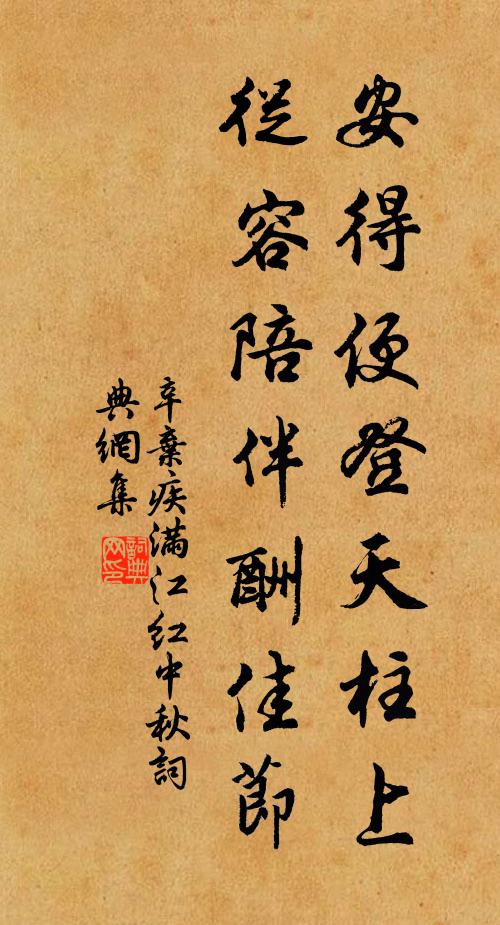 安得便登天柱上
從容陪伴酬佳節
辛棄疾滿江紅中秋詞
典網集
詞典网印